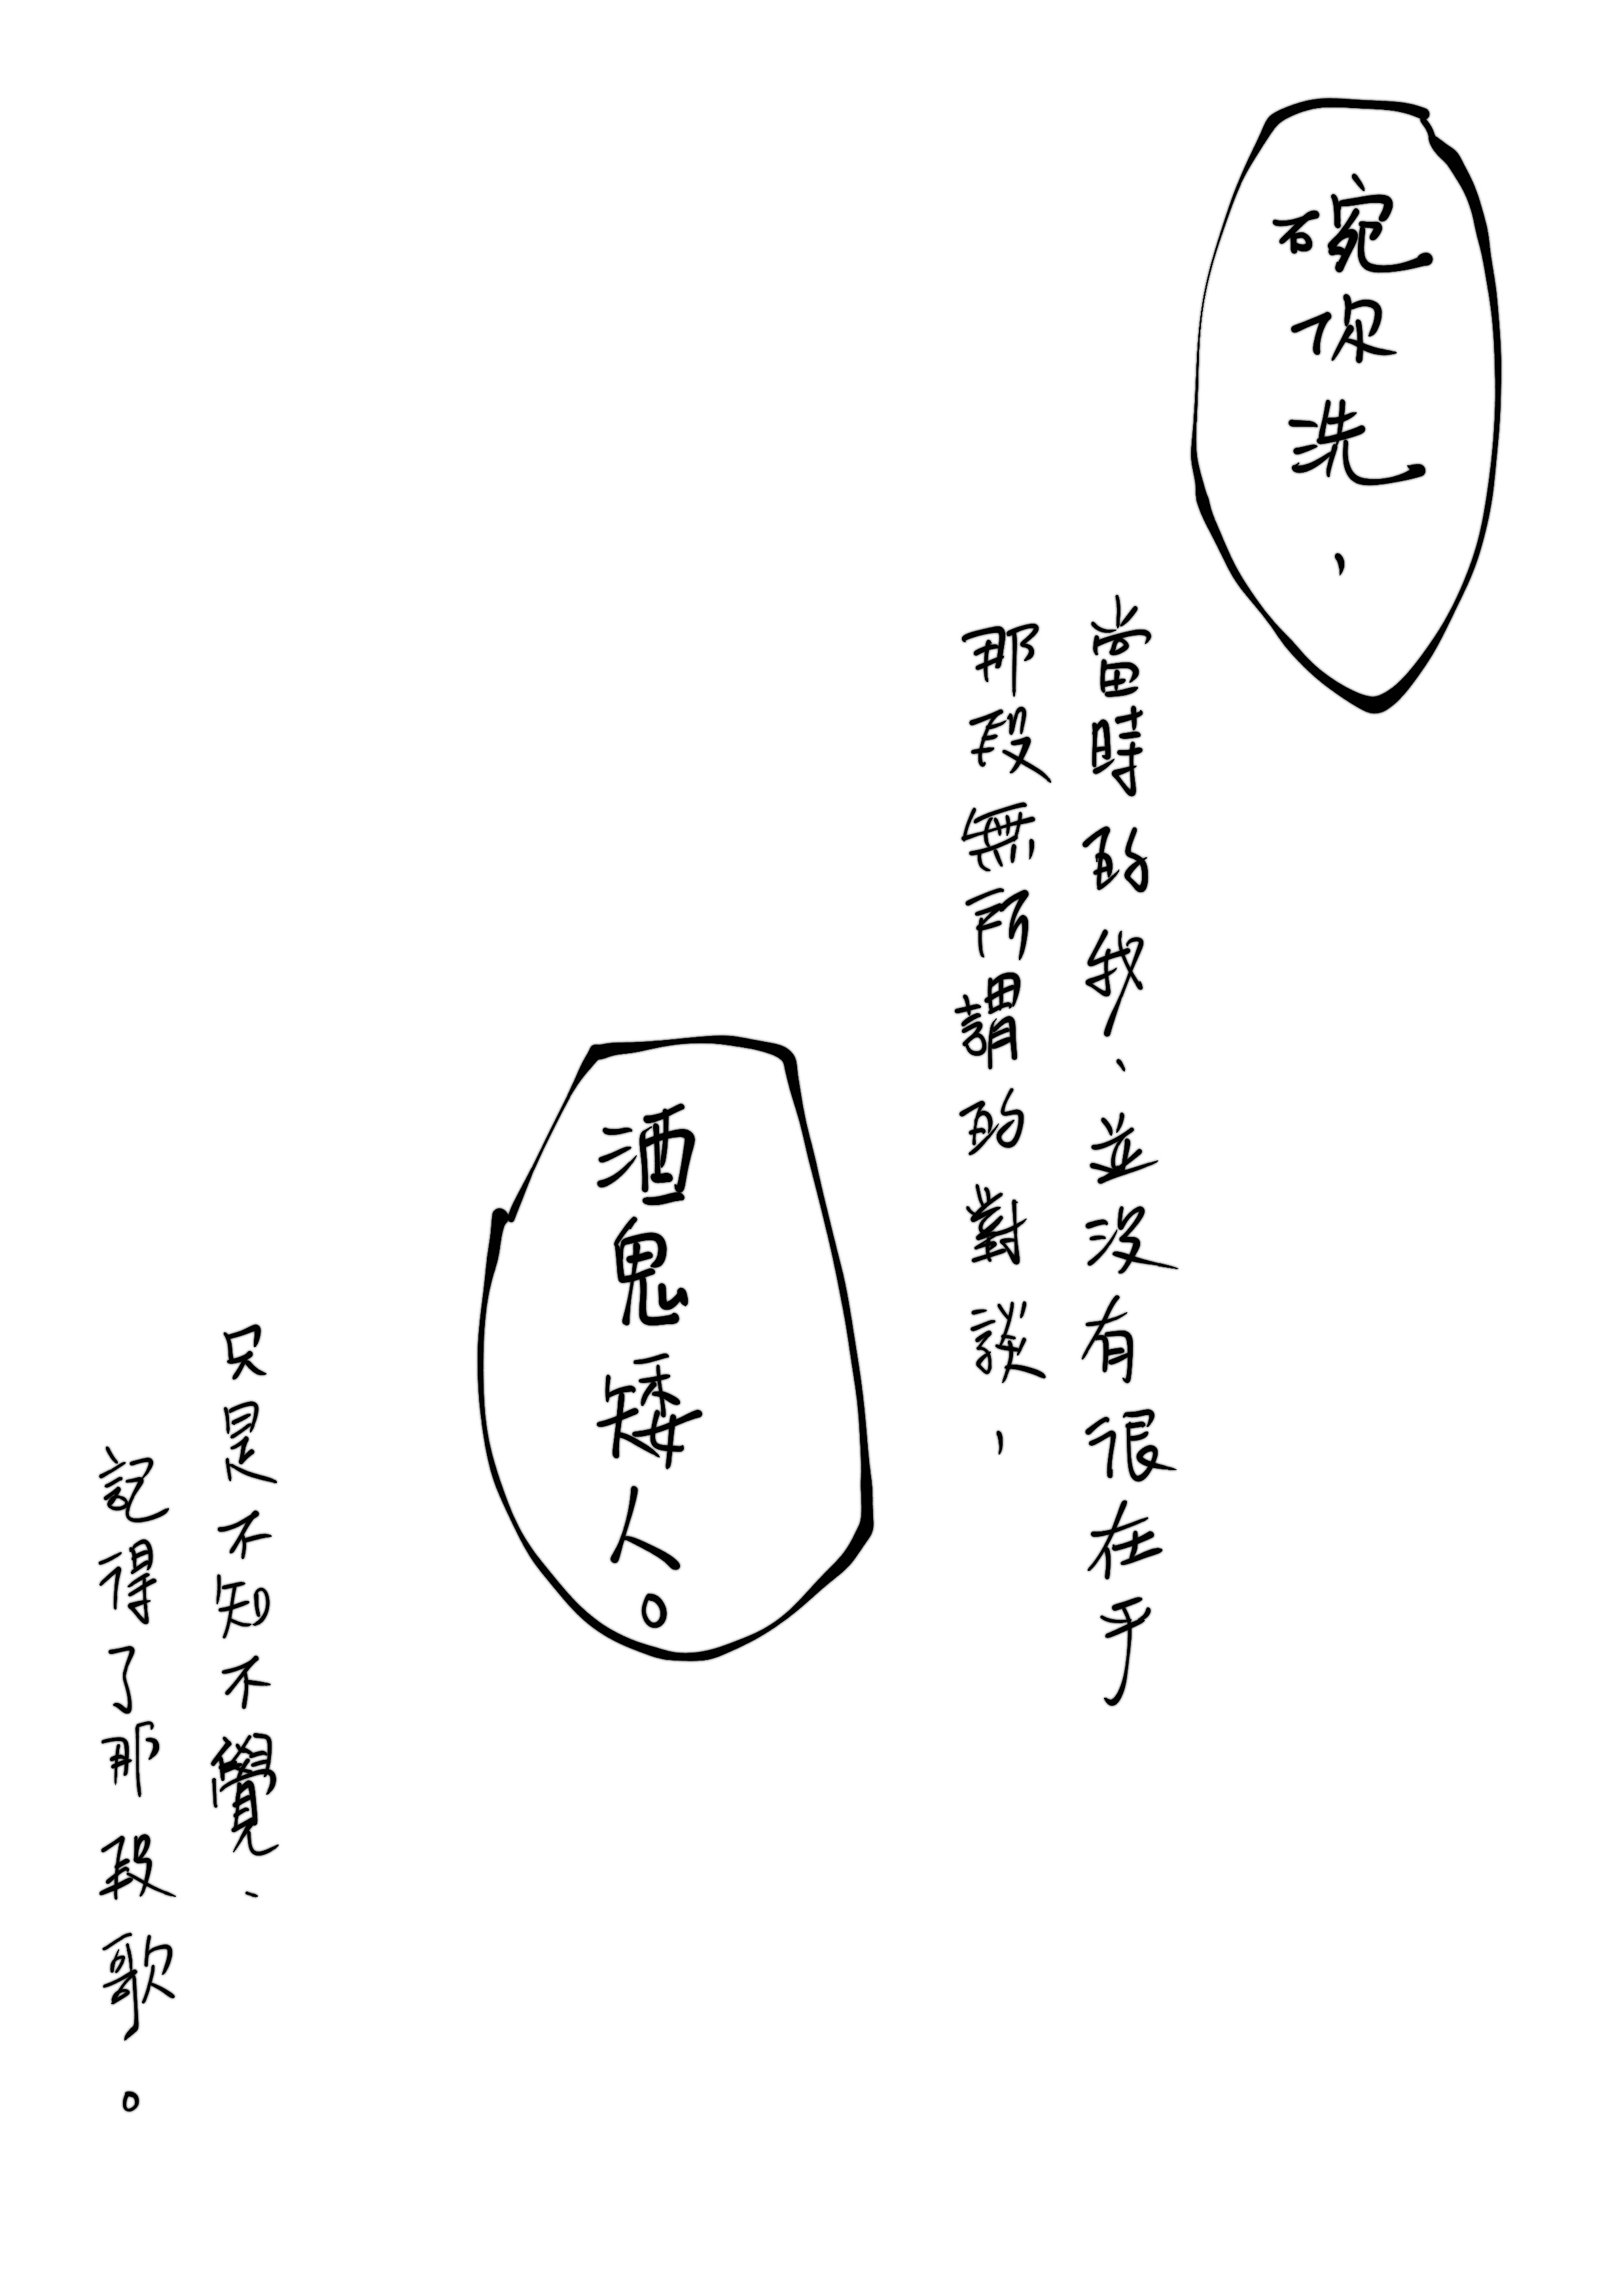 碗你洗，
當時的我，並沒有很在乎
那段無所謂的對談，
酒鬼矮人。
只是不知不覺，
記得了那段歌。